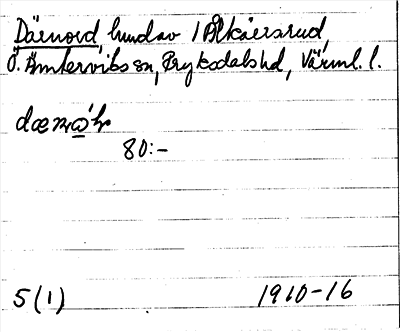 Därnord hund av 1 Ålkärsrud,
Ö. Ämterviks sn, Fryksdals hd, Värml. l.
80:-
5(1) 1910-16